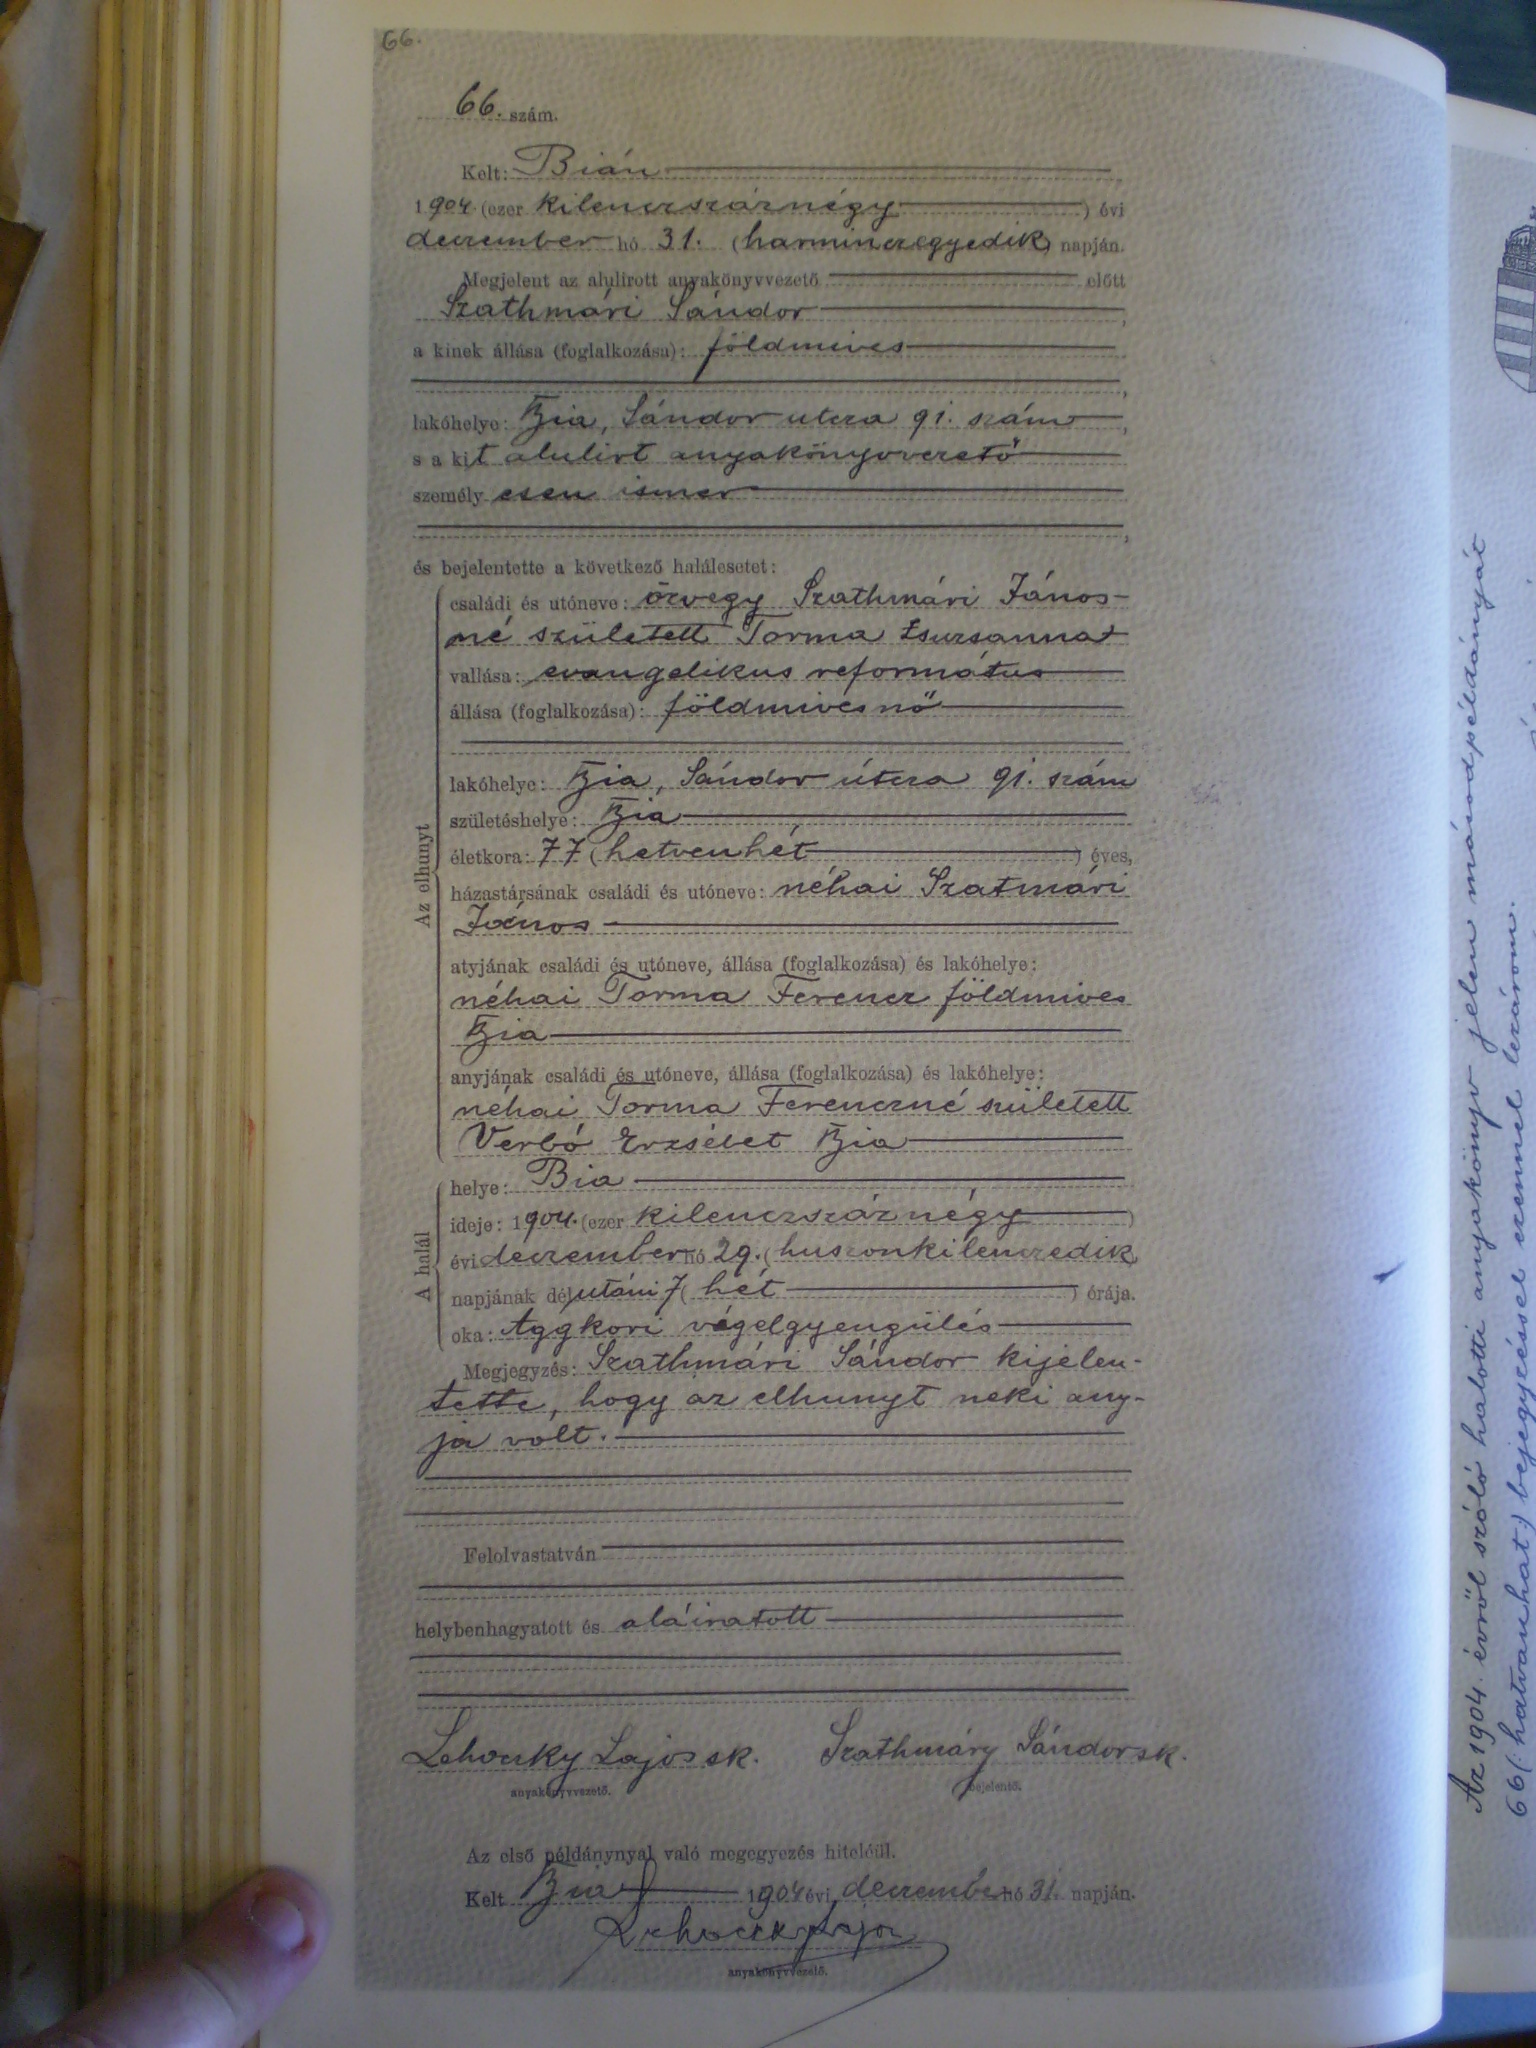 66.
66. szám.
Kelt: Bián
1904. (ezer kilenczszáznégy) évi
deczember hó 31. (harminczegyedik) napján.
Megjelent az alulirott anyakönyvvezető előtt
Szathmári Sándor,
a kinek állása (foglalkozása): földmives
,
lakóhelye: Bia, Sándor utcza 91. szám,
s a kit alulirt anyakönyvvezető
személyesen ismer
,
és bejelentette a következő halálesetet:
Az elhunyt
családi és utóneve: özvegy Szathmári János-
né született Torma Zsuzsanna
vallása: evangelikus református
állása (foglalkozása): földmivesnő
lakóhelye: Bia, Sándor útcza 91. szám
születéshelye: Bia
életkora: 77 (hetvenhét) éves,
házastársának családi és utóneve: néhai Szatmári
János
atyjának családi és utóneve, állása (foglalkozása) és lakóhelye:
néhai Torma Ferencz földmives
Bia
anyjának családi és utóneve, állása (foglalkozása) és lakóhelye:
néhai Torma Ferenczné született
Verbó Erzsébet Bia
A halál
helye: Bia
ideje: 1904. (ezer kilenczszáznégy)
évi deczember hó 29. (huszonkilenczedik)
napjának délutáni 7 (hét) órája.
oka: Aggkori végelgyengülés
Megjegyzés: Szathmári Sándor kijelen-
tette, hogy az elhunyt neki any-
ja volt.
Felolvastatván
helybenhagyatott és aláiratott
Lehoczky Lajos sk. Szathmáry Sándor sk.
anyakönyvvezető. bejelentő.
Az első példánynyal való megegyezés hiteléül.
Kelt Bia 1904 évi deczember hó 31. napján.
Lehoczky Lajos
anyakönyvvezető.
Az 1904. évről szóló halotti anyakönyv jelen másodpéldányát
66 (: hatvanhat :) bejegyzéssel ezennel lezárom.